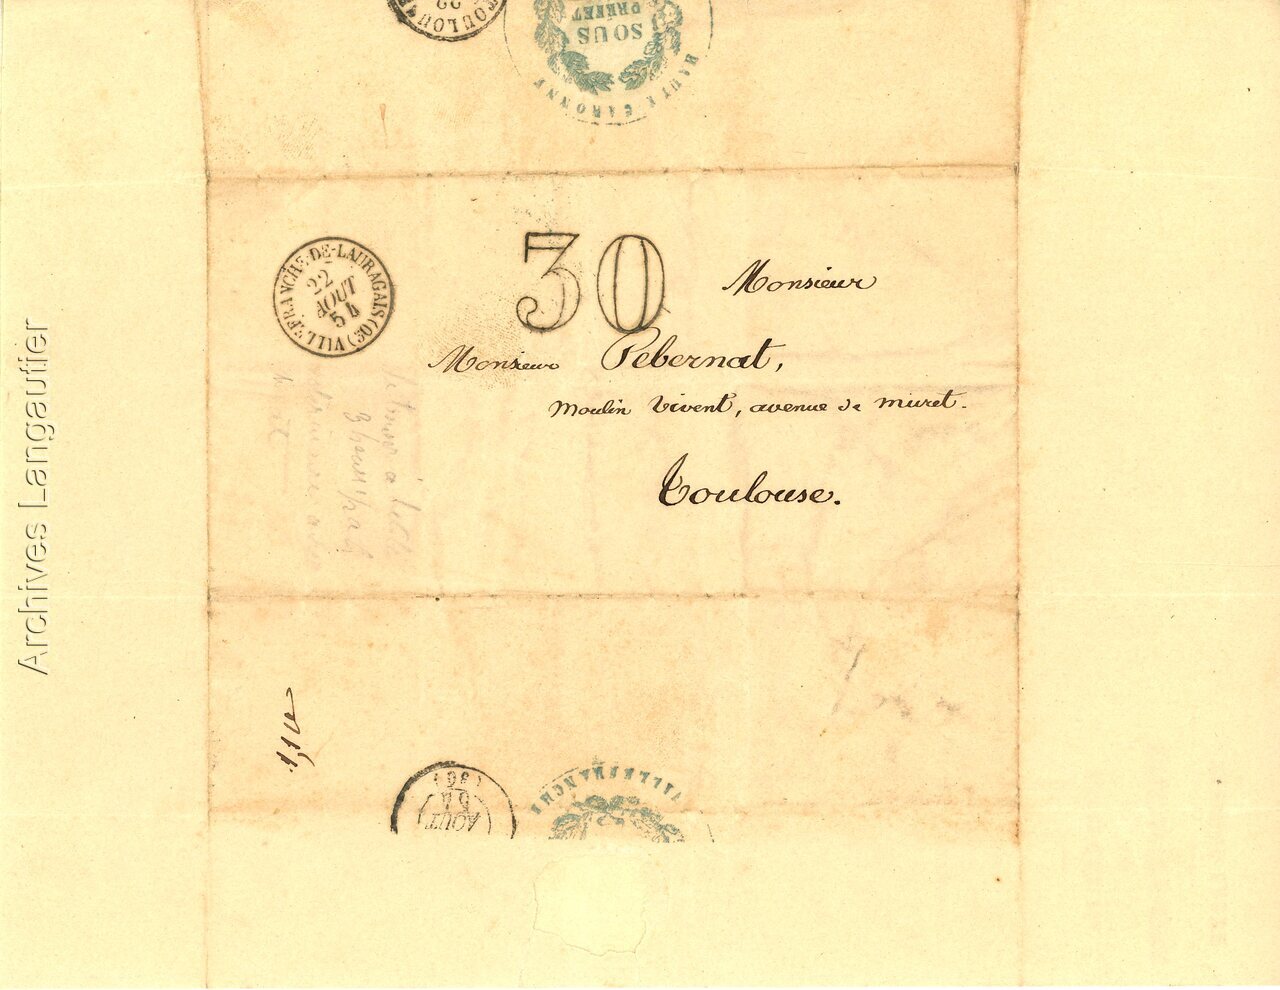 TOULOUSE
22
SOUS
PREFET
HAUTE GARONNE
VILLEFRANCHE-DE-LAURAGAIS (30)
22
AOUT
54
30
Monsieur
Monsieur Pebernat,
Moulin Vivent, avenue de muret.
Toulouse.
(30)
54
AOUT
VILLEFRANCHE
Archives Langautier